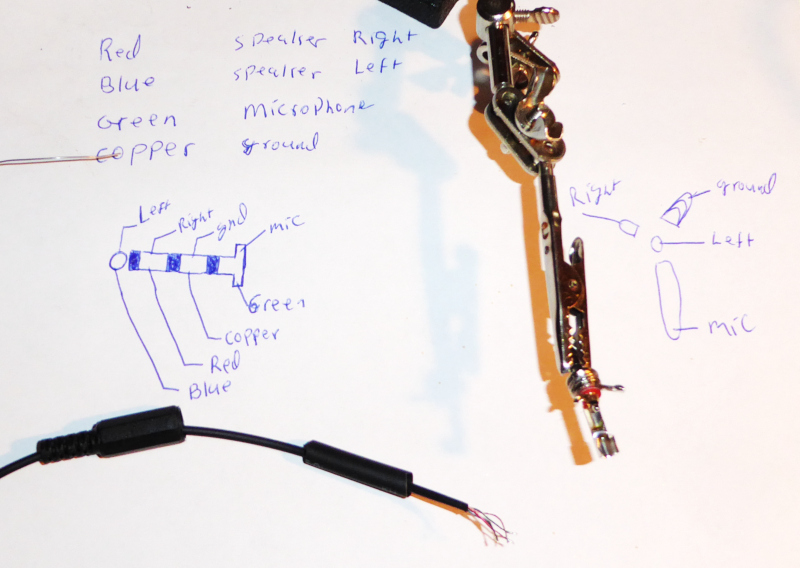 Red speaker Right
Blue speaker Left
Green microphone
copper ground
Left
Right
gnd
mic
Green
copper
Red
Blue
Right
ground
Left
mic